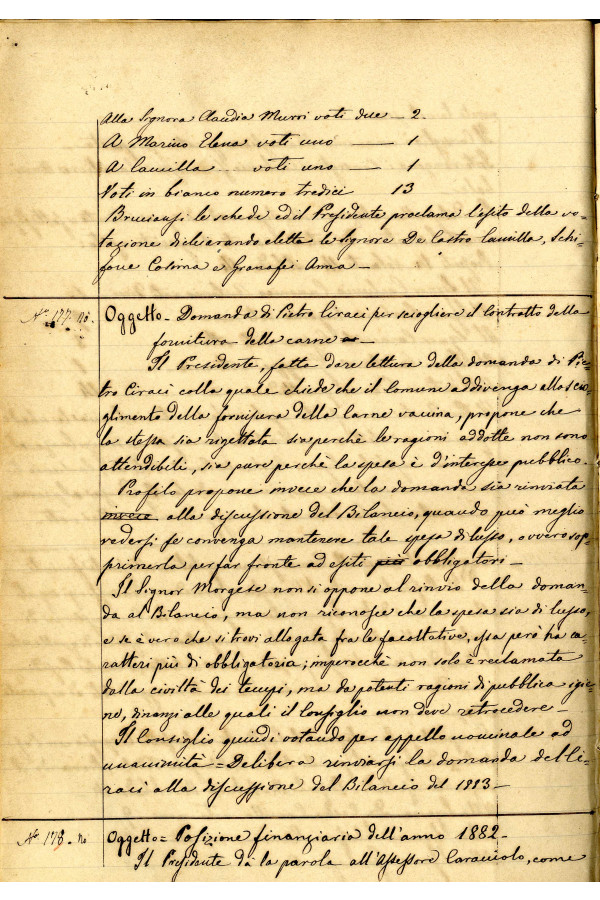 Alla Signora Claudia Murri voti due — 2.
A Marino Elena voti uno — 1
A Camilla voti uno — 1
Voti in bianco numero tredici 13
Bruciansi le schede ed il Presidente proclama l'esito della vo-
tazione dichiarando elette le Signore De Castro Camilla, Schi-
fone Cosima e Granafei Anna —
N.º 177. Oggetto = Domanda di Pietro Ciraci per sciogliere il Contratto della
fornitura della carne —
Il Presidente, fatta dare lettura della domanda di Pie-
tro Ciraci colla quale chiede che il Comune addivenga allo scio-
glimento della fornitura della Carne vaccina, propone che
la stessa sia rigettata sia perchè le ragioni addotte non sono
attendibili, sia pure perchè la spesa è d'interesse pubblico.
Profilo propone invece che la domanda sia rinviata
invece alla discussione del Bilancio, quando può meglio
vedersi se convenga mantenere tale spesa di lusso, ovvero sop-
primerla per far fronte ad esiti più obbligatori —
Il Signor Morgese non si oppone al rinvio della doman-
da al Bilancio, ma non riconosce che la spesa sia di lusso,
e se è vero che si trovi allogata fra le facoltative, essa però ha ca-
ratteri più di obbligatoria; imperocchè non solo è reclamata
dalla civiltà dei tempi, ma da potenti ragioni di pubblica igie-
ne, dinanzi alle quali il Consiglio non deve retrocedere —
Il Consiglio quindi votando per appello nominale ad
unanimità = Delibera rinviarsi la domanda del Ci-
raci alla discussione del Bilancio del 1883 —
N.º 178. Oggetto = Posizione finanziaria dell'anno 1882 —
Il Presidente dà la parola all'Assessore Caracciolo, come